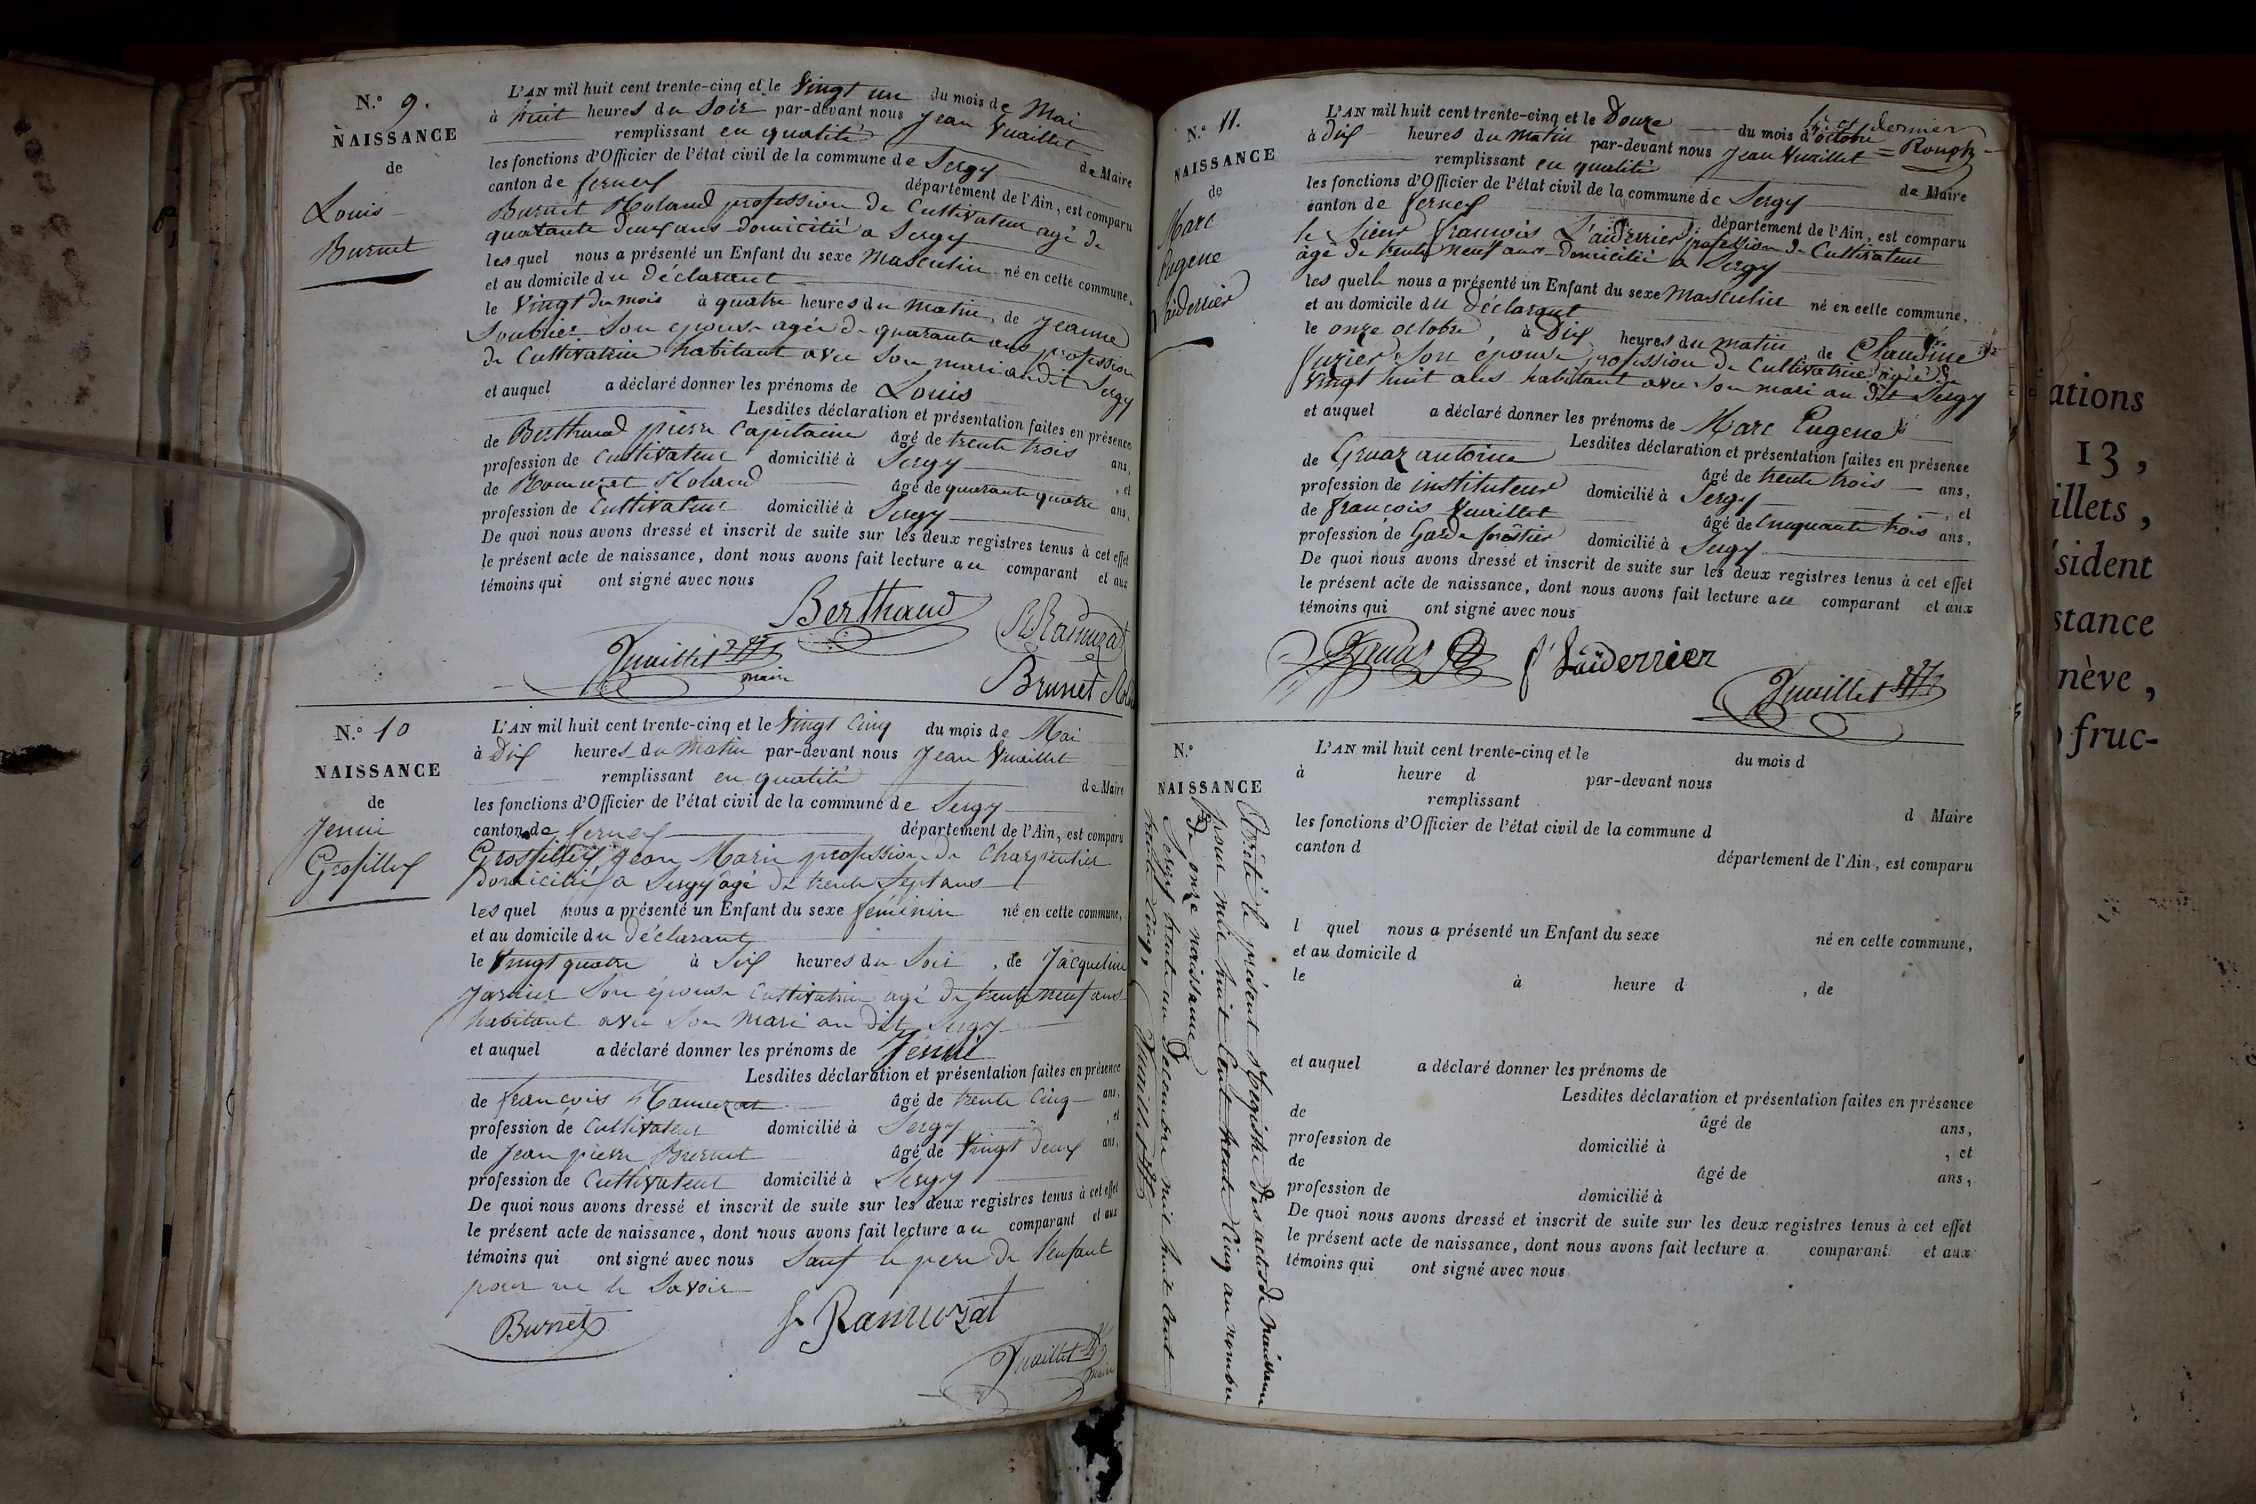 N.° 9.
NAISSANCE
de
Louis
Burnet
L'AN mil huit cent trente-cinq et le Vingt un du mois de Mai
à huit heures du Soir par-devant nous Jean Vuaillet
remplissant en qualité de Maire
les fonctions d'Officier de l'état civil de la commune de Sergy
canton de ferney département de l'Ain, est comparu
Burnet Roland profession de Cultivateur agé de
quarante deux ans domicilié a Sergy
les quel nous a présenté un Enfant du sexe Masculin né en cette commune,
et au domicile du déclarant
le Vingt du mois à quatre heures du matin, de Jeanne
Son epouse agée de quarante ans profession
de Cultivatrice habitant avec Son mari au dit Sergy
et auquel a déclaré donner les prénoms de Louis
Lesdites déclaration et présentation faites en présence
de Berthaud pierre Capitaine âgé de trente trois ans,
profession de Cultivateur domicilié à Sergy , et
de Ramuzat Roland âgé de quarante quatre ans,
profession de Cultivateur domicilié à Sergy
De quoi nous avons dressé et inscrit de suite sur les deux registres tenus à cet effet
le présent acte de naissance, dont nous avons fait lecture au comparant et aux
témoins qui ont signé avec nous
Berthaud
R. Ramuzat
Vuaillet
maire
Brunet
N.° 10
NAISSANCE
de
Jenni
Grosfillex
L'AN mil huit cent trente-cinq et le Vingt Cinq du mois de Mai
à Dix heures du Matin par-devant nous Jean Vuaillet
remplissant en qualité de Maire
les fonctions d'Officier de l'état civil de la commune de Sergy
canton de ferney département de l'Ain, est comparu
Grosfillex Jean Marie profession de Charpentier
domicilié a Sergy agé de trente Sept ans
les quel nous a présenté un Enfant du sexe féminin né en cette commune,
et au domicile du déclarant
le Vingt quatre à Six heures du Soir , de Jacqueline
Son épouse Cultivatrice agé de trente neuf ans
habitant avec Son Mari au dit Sergy
et auquel a déclaré donner les prénoms de Jenni
Lesdites déclaration et présentation faites en présence
de françois Ramuzat âgé de trente Cinq ans,
profession de Cultivateur domicilié à Sergy , et
de Jean pierre Burnet âgé de Vingt Deux ans,
profession de Cultivateur domicilié à Sergy
De quoi nous avons dressé et inscrit de suite sur les deux registres tenus à cet effet
le présent acte de naissance, dont nous avons fait lecture au comparant et aux
témoins qui ont signé avec nous Sauf le pere de l'enfant
pour ne le Savoir
Burnet
fr Ramuozat
Vuaillet
maire
N.° 11.
NAISSANCE
de
Marc
Eugene
Laiderrier
L'AN mil huit cent trente-cinq et le Douze du mois d'octobre dernier
à dix heures du matin par-devant nous Jean Vuaillet
remplissant en qualité de Maire
les fonctions d'Officier de l'état civil de la commune de Sergy
canton de ferney département de l'Ain, est comparu
le Sieur françois Laiderrier profession de Cultivateur
âgé de trente neuf ans domicilié a Sergy
les quel nous a présenté un Enfant du sexe Masculin né en cette commune,
et au domicile du Déclarant
le onze octobre à Dix heures du matin de Claudine
Son épouse profession de Cultivatrice agée de
Vingt huit ans habitant avec Son mari au dit Sergy
et auquel a déclaré donner les prénoms de Marc Eugene
Lesdites déclaration et présentation faites en présence
de Gruaz antoine âgé de trente trois ans,
profession de instituteur domicilié à Sergy , et
de françois Vuaillet âgé de Cinquante trois ans,
profession de Garde forêstier domicilié à Sergy
De quoi nous avons dressé et inscrit de suite sur les deux registres tenus à cet effet
le présent acte de naissance, dont nous avons fait lecture au comparant et aux
témoins qui ont signé avec nous
Gruaz
f' Laiderrier
Vuaillet
N.°
NAISSANCE
Arrêté le présent Registre des actes de Naissance
pour mil huit Cent trente Cinq au nombre
de onze naissance
Sergy trente un Décembre mil huit Cent
trente Cinq, Vuaillet
L'AN mil huit cent trente-cinq et le du mois d
à heure d par-devant nous
remplissant d Maire
les fonctions d'Officier de l'état civil de la commune d
canton d département de l'Ain, est comparu
l quel nous a présenté un Enfant du sexe né en cette commune,
et au domicile d
le à heure d , de
et auquel a déclaré donner les prénoms de
Lesdites déclaration et présentation faites en présence
de âgé de ans,
profession de domicilié à , et
de âgé de ans,
profession de domicilié à
De quoi nous avons dressé et inscrit de suite sur les deux registres tenus à cet effet
le présent acte de naissance, dont nous avons fait lecture a comparant et aux
témoins qui ont signé avec nous
ations
13,
illets,
sident
stance
nève,
fruc-